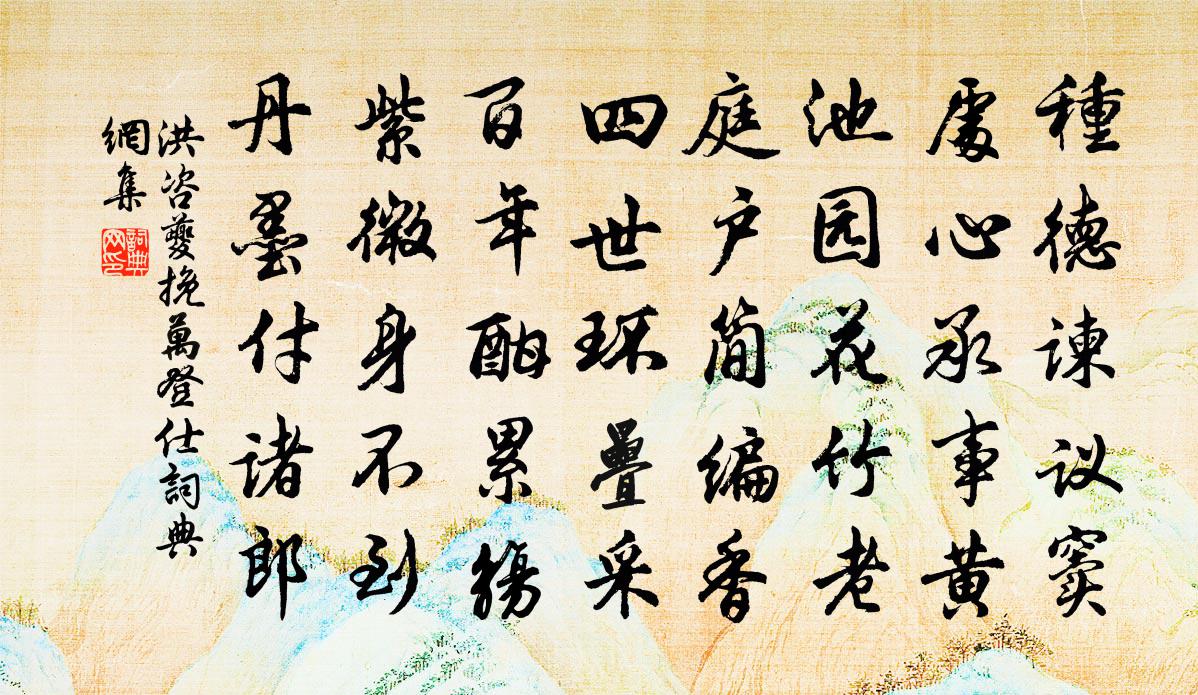 種德谏议窦
處心承事黄
池园花竹老
庭户简编香
四世环疊采
百年酣累觞
紫微身不到
丹墨付诸郎
洪咨夔挽萬登仕詞典
網集
詞典
网印